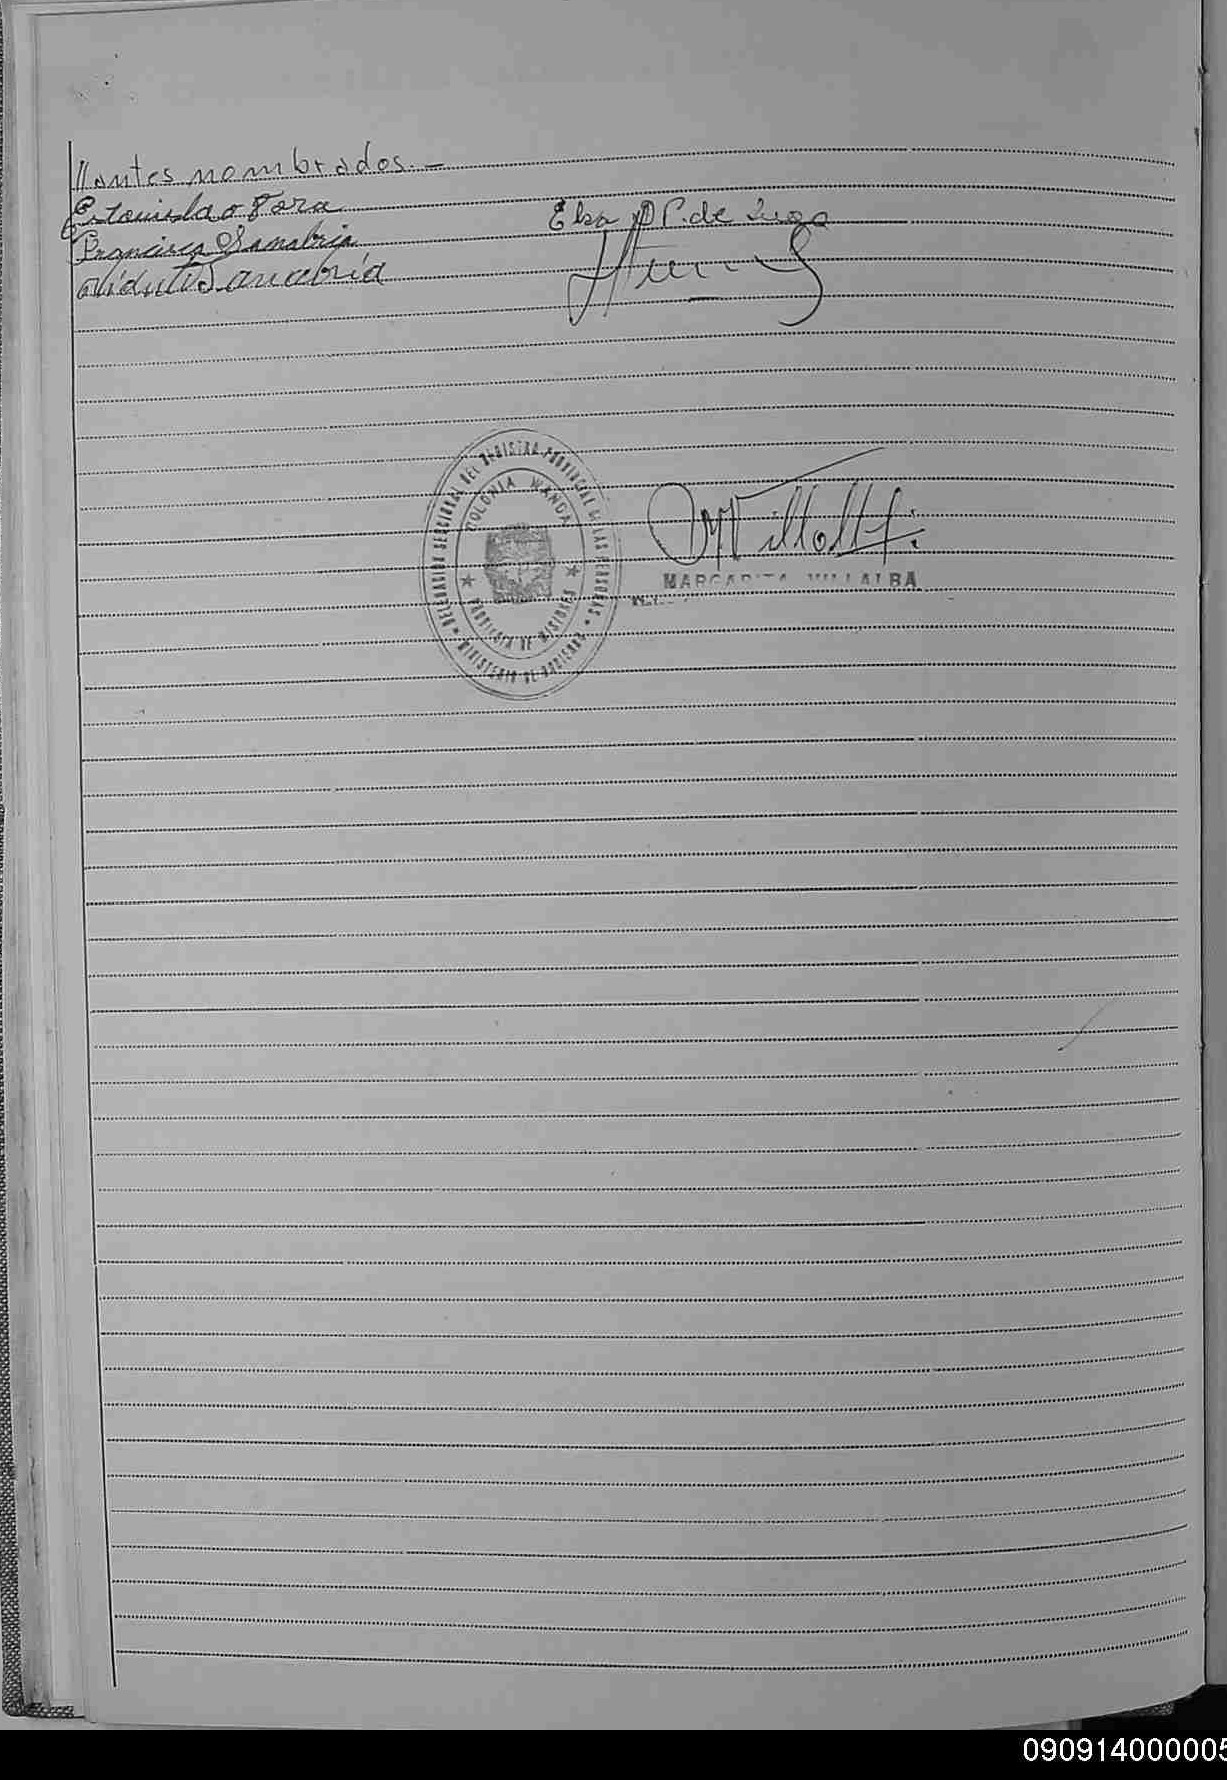 llantes nombrados.—
Estanislao Fora
Elsa P. de Lugo
Francisca Sanabria
Sanabria
DELEGACION SECCIONAL DEL REGISTRO PROVINCIAL DE LAS PERSONAS
COLONIA WANDA
PROVINCIA DE MISIONES
MINISTERIO DE GOBIERNO
MARGARITA VILLALBA
090914000005